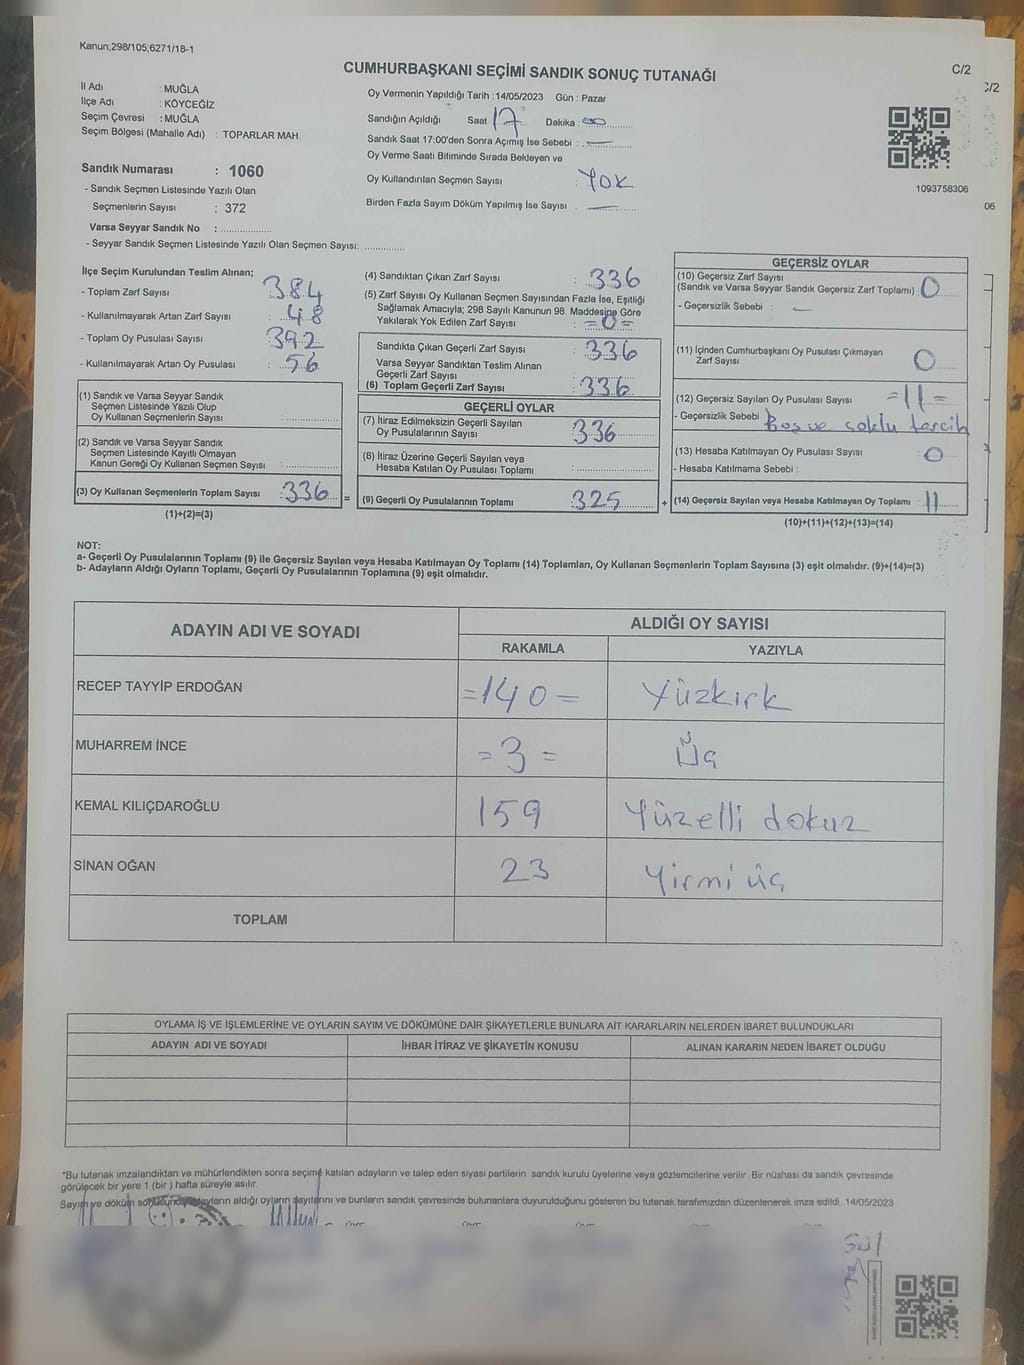 Kanun;298/105;6271/18-1
CUMHURBAŞKANI SEÇİMİ SANDIK SONUÇ TUTANAĞI
C/2
C/2
İl Adı : MUĞLA
İlçe Adı : KÖYCEĞİZ
Seçim Çevresi : MUĞLA
Seçim Bölgesi (Mahalle Adı) : TOPARLAR MAH.
Sandık Numarası : 1060
- Sandık Seçmen Listesinde Yazılı Olan
Seçmenlerin Sayısı : 372
Varsa Seyyar Sandık No : ....................
- Seyyar Sandık Seçmen Listesinde Yazılı Olan Seçmen Sayısı: ...............
Oy Vermenin Yapıldığı Tarih :14/05/2023 Gün : Pazar
Sandığın Açıldığı Saat 17 Dakika : 00
Sandık Saat 17:00'den Sonra Açımış İse Sebebi : —
Oy Verme Saati Bitiminde Sırada Bekleyen ve
Oy Kullandırılan Seçmen Sayısı : YOK
Birden Fazla Sayım Döküm Yapılmış İse Sayısı : —
1093758306
06
İlçe Seçim Kurulundan Teslim Alınan;
- Toplam Zarf Sayısı : 384
- Kullanılmayarak Artan Zarf Sayısı : 48
- Toplam Oy Pusulası Sayısı : 392
- Kullanılmayarak Artan Oy Pusulası : 56
(1) Sandık ve Varsa Seyyar Sandık
Seçmen Listesinde Yazılı Olup
Oy Kullanan Seçmenlerin Sayısı :
(2) Sandık ve Varsa Seyyar Sandık
Seçmen Listesinde Kayıtlı Olmayan
Kanun Gereği Oy Kullanan Seçmen Sayısı :
(3) Oy Kullanan Seçmenlerin Toplam Sayısı : 336 =
(1)+(2)=(3)
(4) Sandıktan Çıkan Zarf Sayısı : 336
(5) Zarf Sayısı Oy Kullanan Seçmen Sayısından Fazla İse, Eşitliği
Sağlamak Amacıyla; 298 Sayılı Kanunun 98. Maddesine Göre
Yakılarak Yok Edilen Zarf Sayısı : =0=
Sandıkta Çıkan Geçerli Zarf Sayısı : 336
Varsa Seyyar Sandıktan Teslim Alınan
Geçerli Zarf Sayısı
(6) Toplam Geçerli Zarf Sayısı : 336
GEÇERLİ OYLAR
(7) İtiraz Edilmeksizin Geçerli Sayılan
Oy Pusulalarının Sayısı : 336
(8) İtiraz Üzerine Geçerli Sayılan veya
Hesaba Katılan Oy Pusulası Toplamı :
(9) Geçerli Oy Pusulalarının Toplamı : 325 +
GEÇERSİZ OYLAR
(10) Geçersiz Zarf Sayısı
(Sandık ve Varsa Seyyar Sandık Geçersiz Zarf Toplamı) : 0
- Geçersizlik Sebebi : —
(11) İçinden Cumhurbaşkanı Oy Pusulası Çıkmayan
Zarf Sayısı : 0
(12) Geçersiz Sayılan Oy Pusulası Sayısı =11=
- Geçersizlik Sebebi : Boş ve çoklu tercih
(13) Hesaba Katılmayan Oy Pusulası Sayısı : 0
- Hesaba Katılmama Sebebi :
(14) Geçersiz Sayılan veya Hesaba Katılmayan Oy Toplamı : 11
(10)+(11)+(12)+(13)=(14)
NOT:
a- Geçerli Oy Pusulalarının Toplamı (9) ile Geçersiz Sayılan veya Hesaba Katılmayan Oy Toplamı (14) Toplamları, Oy Kullanan Seçmenlerin Toplam Sayısına (3) eşit olmalıdır. (9)+(14)=(3)
b- Adayların Aldığı Oyların Toplamı, Geçerli Oy Pusulalarının Toplamına (9) eşit olmalıdır.
ADAYIN ADI VE SOYADI
ALDIĞI OY SAYISI
RAKAMLA YAZIYLA
RECEP TAYYİP ERDOĞAN =140= Yüzkırk
MUHARREM İNCE =3= Üç
KEMAL KILIÇDAROĞLU 159 Yüzelli dokuz
SİNAN OĞAN 23 Yirmi üç
TOPLAM
OYLAMA İŞ VE İŞLEMLERİNE VE OYLARIN SAYIM VE DÖKÜMÜNE DAİR ŞİKAYETLERLE BUNLARA AİT KARARLARIN NELERDEN İBARET BULUNDUKLARI
ADAYIN ADI VE SOYADI İHBAR İTİRAZ VE ŞİKAYETİN KONUSU ALINAN KARARIN NEDEN İBARET OLDUĞU
*Bu tutanak imzalandıktan ve mühürlendikten sonra seçime katılan adayların ve talep eden siyasi partilerin sandık kurulu üyelerine veya gözlemcilerine verilir. Bir nüshası da sandık çevresinde
görülecek bir yere 1 (bir) hafta süreyle asılır.
Sayım ve döküm sonucunda adayların aldığı oyların sayılarını ve bunların sandık çevresinde bulunanlara duyurulduğunu gösteren bu tutanak tarafımızdan düzenlenerek imza edildi. 14/05/2023
Gül